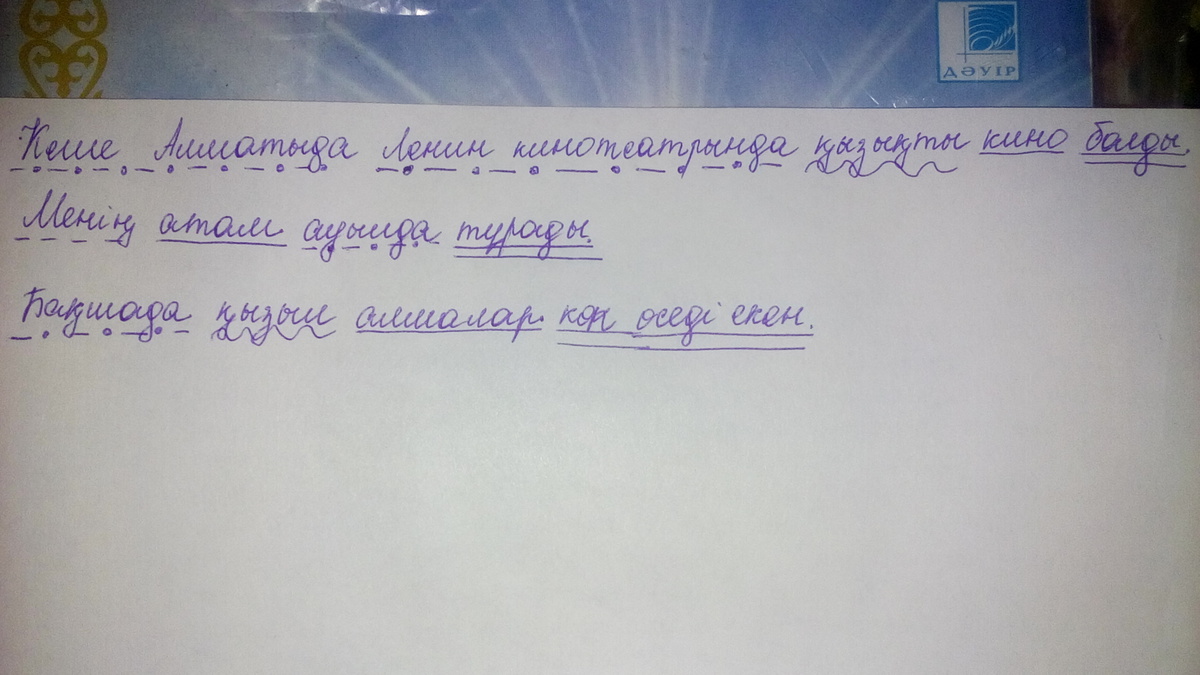 ДӘУІР
Кеше Алматыда Ленин кинотеатрында қызықты кино болды.
Менің атам ауылда тұрады.
Бақшада қызыл алмалар көп өседі екен.